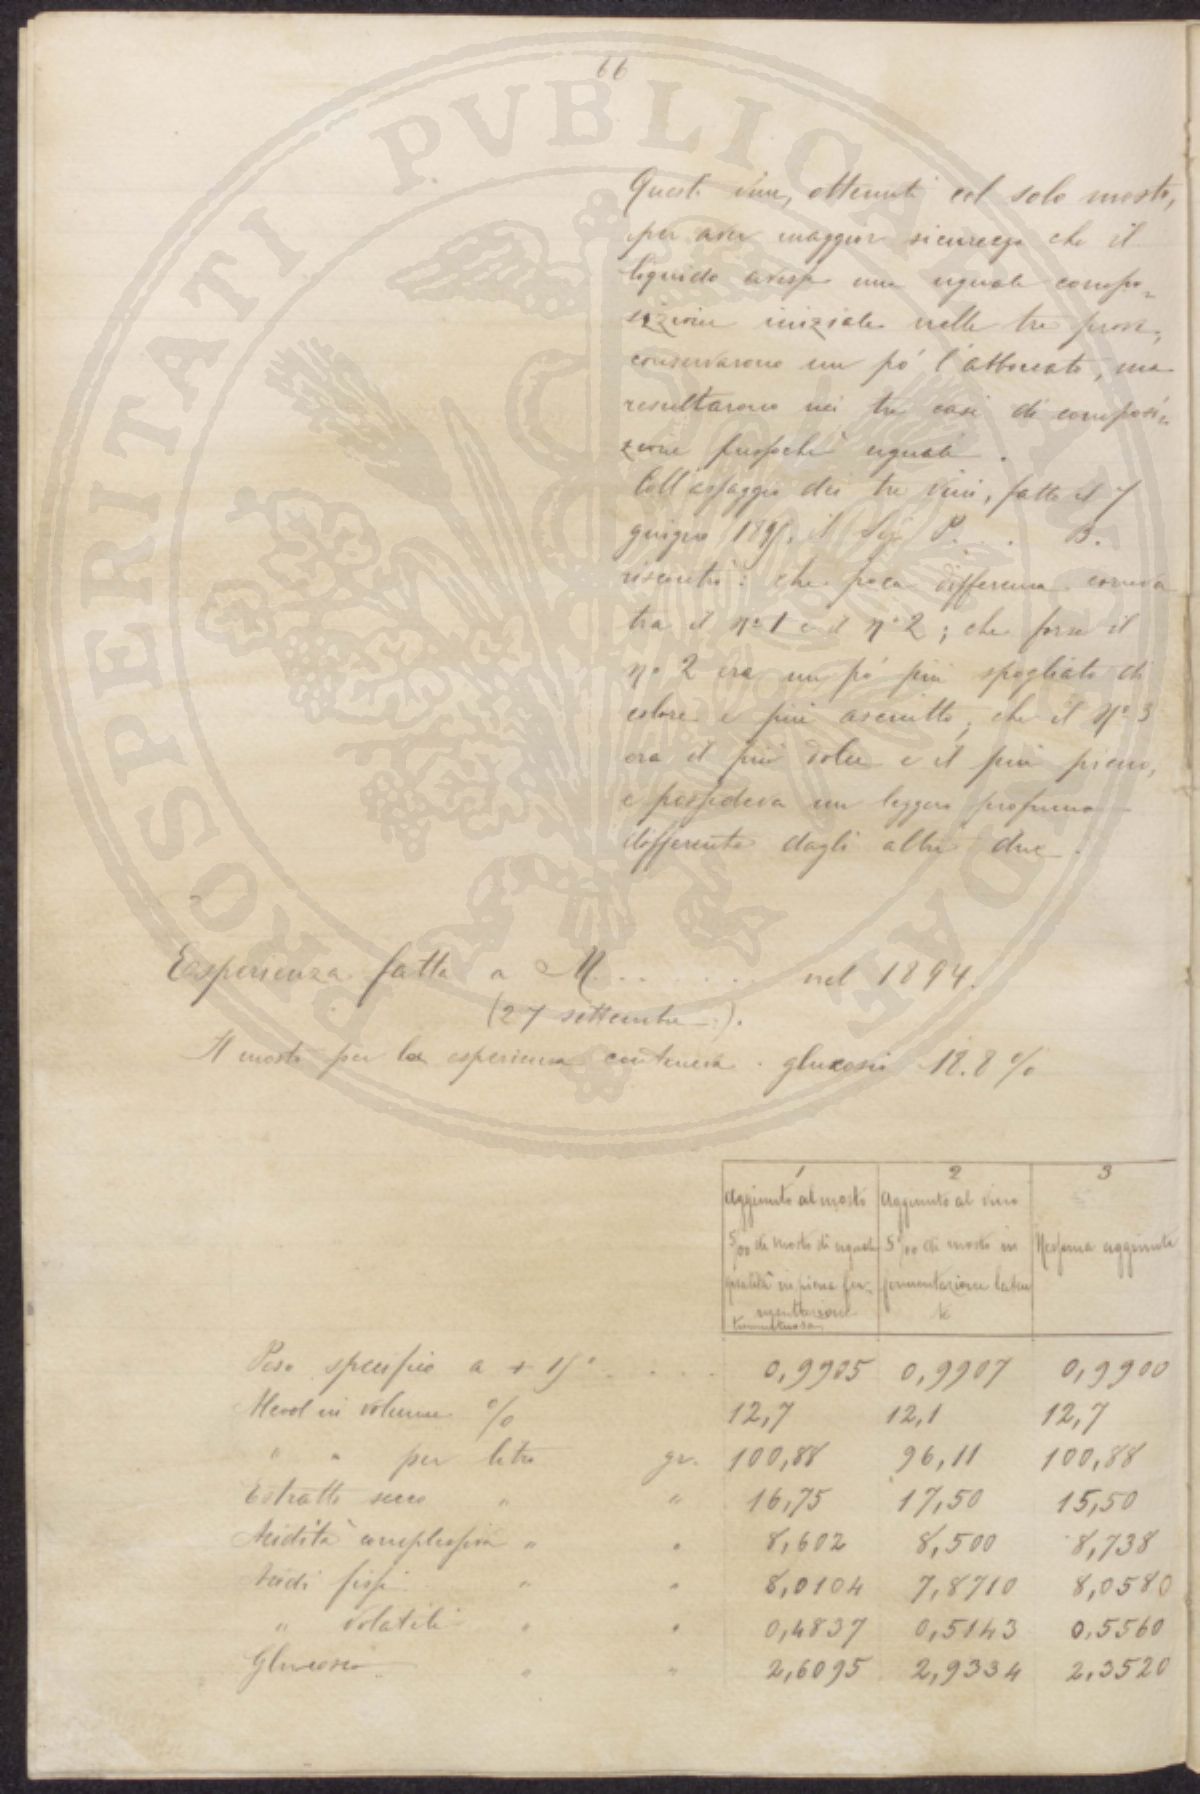 66
Questi vini, ottenuti col solo mosto,
per aver maggior sicurezza che il
liquido avesse una uguale compo-
sizione iniziale nelle tre prove,
conservarono un pó l'abboccato, ma
resultarono nei tre casi di composi-
zione pressochè uguale.
Coll'assaggio dei tre vini, fatto il 7
giugno 1895, il Sig. P. . . . B.
riscontrò: che poca differenza correva
tra il nº 1 e il nº 2; che forse il
nº 2 era un pó più spogliato di
colore e più asciutto; che il nº 3
era il più dolce e il più pieno,
e possedeva un leggero profumo
differente dagli altri due.
Esperienza fatta a M. . . . . . . nel 1894.
(27 settembre).
Il mosto per la esperienza conteneva . glucosio 18.8 %
1 2 3
Aggiunto al mosto
5/00 di mosto di uguale
qualità in piena fer-
mentazione
tumultuosa
Aggiunto al vino
5 %0 di mosto in
fermentazione laten
te
Nessuna aggiunta
Peso specifico a + 15º . . . . 0,9905 0,9907 0,9900
Alcool in volume % 12,7 12,1 12,7
" " per litro gr. 100,88 96,11 100,88
Estratto secco " " 16,75 17,50 15,50
Acidità complessiva " " 8,602 8,500 8,738
Acidi fissi " " 8,0104 7,8710 8,0580
" volatili " " 0,4837 0,5143 0,5560
Glucosio " " 2,6095 2,9334 2,3520
PROSPERITATI PVBLICAE